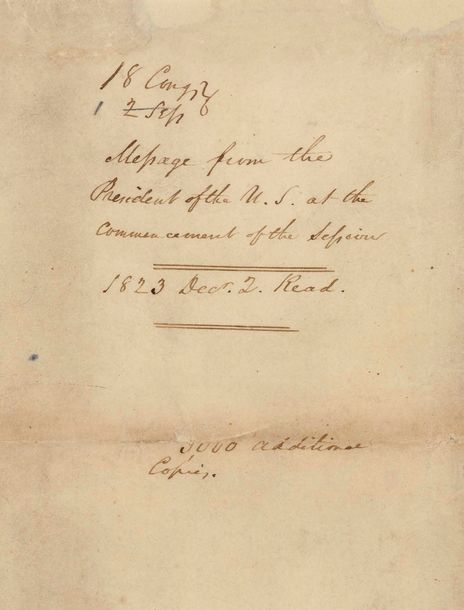 18 Congrs
1 2 Sess
Message from the
President of the U. S. at the
Commencement of the Session
1823 Decr. 2. Read.
3000 additional
Copies.